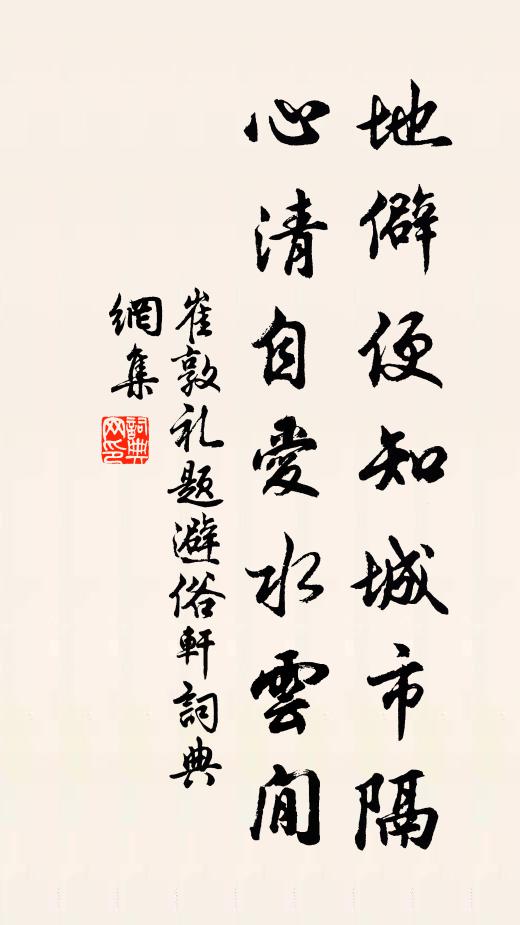 地僻便知城市隔
心清自愛水雲間
崔敦礼題避俗軒詞典
網集
詞典網印